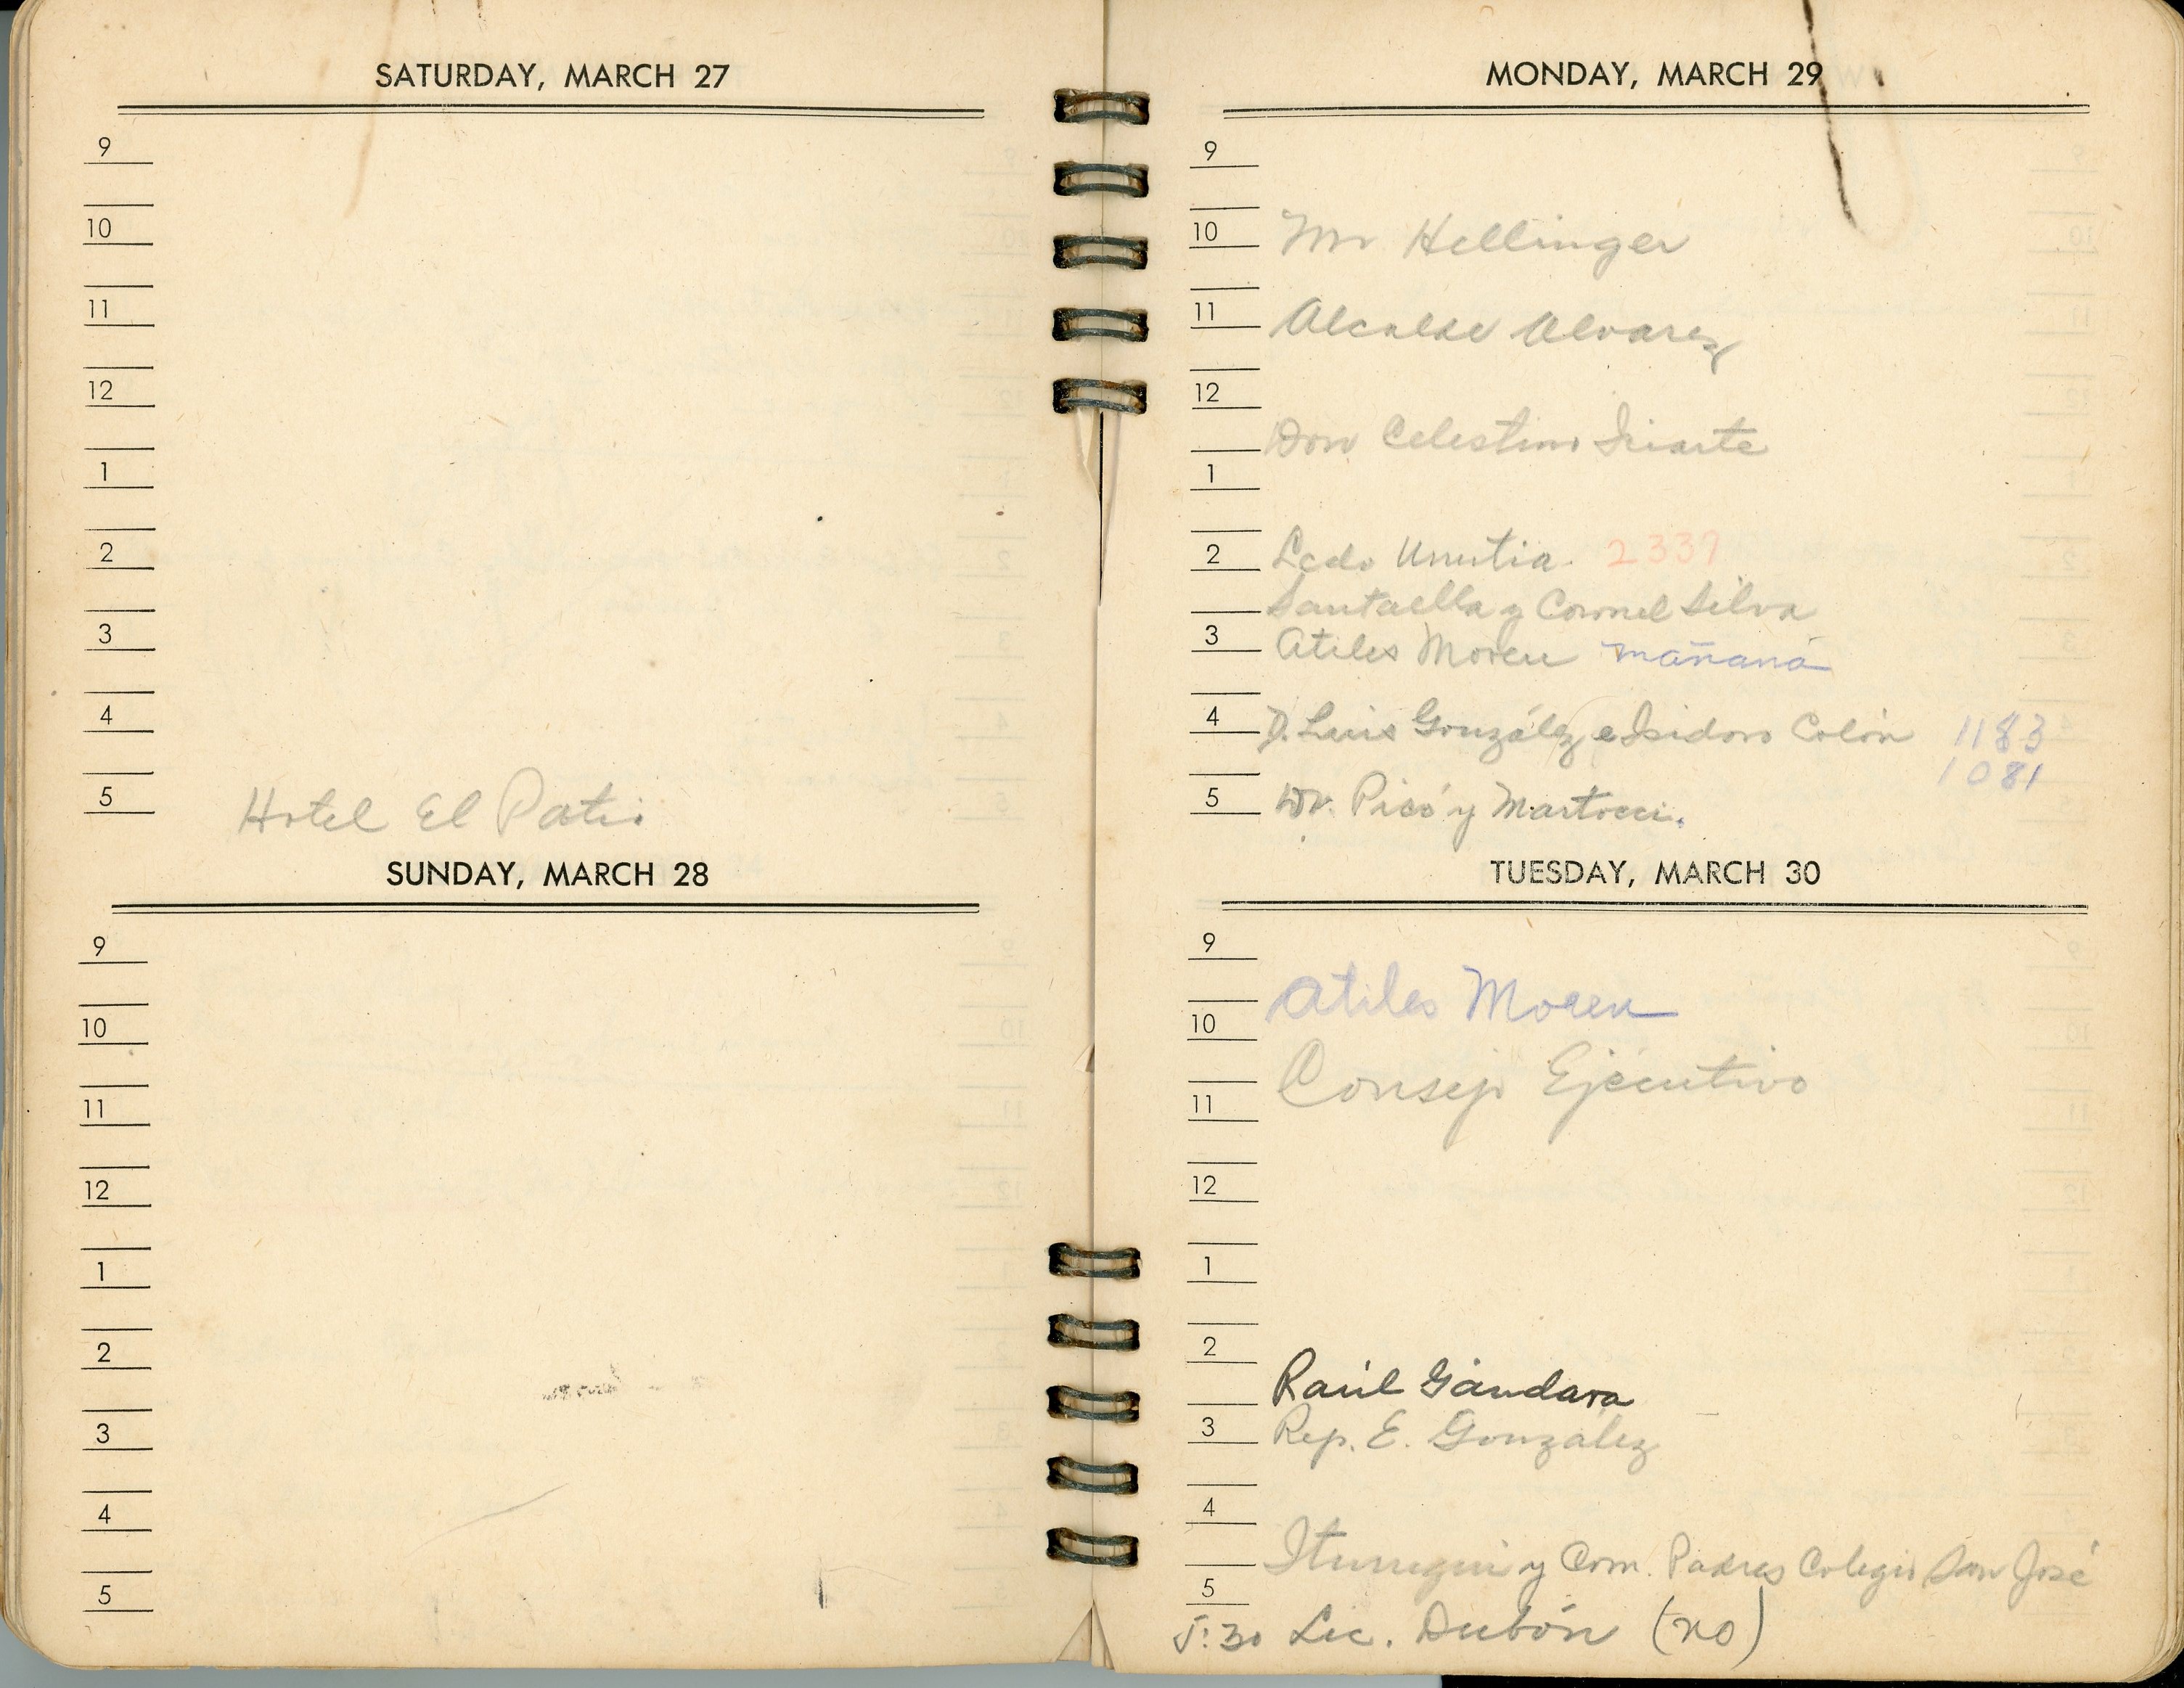 SATURDAY, MARCH 27
9
10
11
12
1
2
3
4
5 Hotel El Patio
SUNDAY, MARCH 28
9
10
11
12
1
2
3
4
5
MONDAY, MARCH 29
9
10 Mr Hellinger
11 Alcalde Alvarez
12
Don Celestino Iriarte
1
2 Lcdo Urrutia. 2337
Santaella y Coronel Silva
3 Atiles Moreu mañana
4 D. Luis González e Isidoro Colón 1183
1081
5 Dr. Picó y Martocci.
TUESDAY, MARCH 30
9
Atiles Moreu
10
Consejo Ejecutivo
11
12
1
2
Raúl Gándara
3 Rep. E. González
4
y Com. Padres Colegio San José
5
5:30 Lic. Dubón (no)